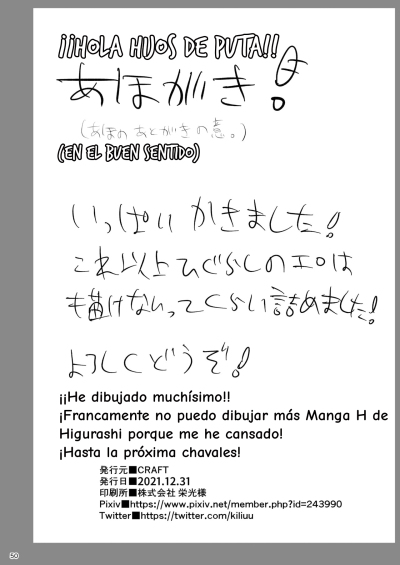 ¡¡HOLA HIJOS DE PUTA!!
あほがき!
(あほの あとがきの意。)
(EN EL BUEN SENTIDO)
いっぱい かきました!
これ以上ひぐらしのエロは
も描けないってくらい詰めました!
よろしくどうぞ!
¡¡He dibujado muchísimo!!
¡Francamente no puedo dibujar más Manga H de
Higurashi porque me he cansado!
¡Hasta la próxima chavales!
発行元■CRAFT
発行日■2021.12.31
印刷所■株式会社 栄光様
Pixiv■https://www.pixiv.net/member.php?id=243990
Twitter■https://twitter.com/kiliuu
50